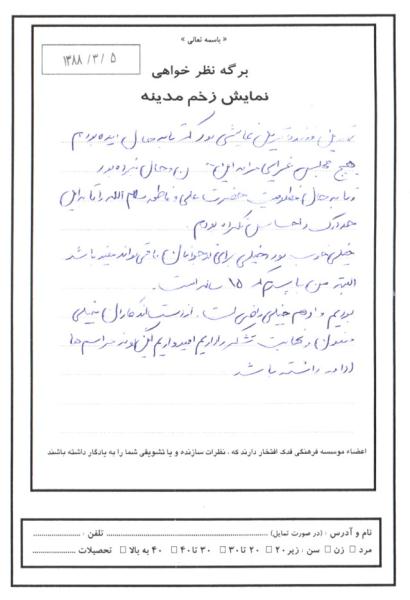 « باسمه تعالی »
۱۳۸۸ / ۳ / ۵
برگه نظر خواهی
نمایش زخم مدینه
نمایشی بود که تا به حال دیده بودم
هیچ مجلس عزایی مرا به این حال نبرده بود
و تا به حال مظلومیت حضرت علی و فاطمه سلام الله را تا به این
حد درک و احساس نکرده بودم.
خیلی خوب بود و خیلی برای نوجوانان می‌تواند مفید باشد
البته من با پسرم که ۱۵ ساله است.
بودیم و او هم خیلی راضی است. از دست‌اندرکاران خیلی
ممنون و نهایت تشکر را داریم امیدواریم این‌گونه مراسم‌ها
ادامه داشته باشد
اعضاء موسسه فرهنگی فدک افتخار دارند که ، نظرات سازنده و یا تشویقی شما را به یادگار داشته باشند
نام و آدرس : (در صورت تمایل) .......... تلفن : ..........
مرد □ زن □ سن : زیر ۲۰ □ ۲۰ تا ۳۰ □ ۳۰ تا ۴۰ □ ۴۰ به بالا □ تحصیلات ..........